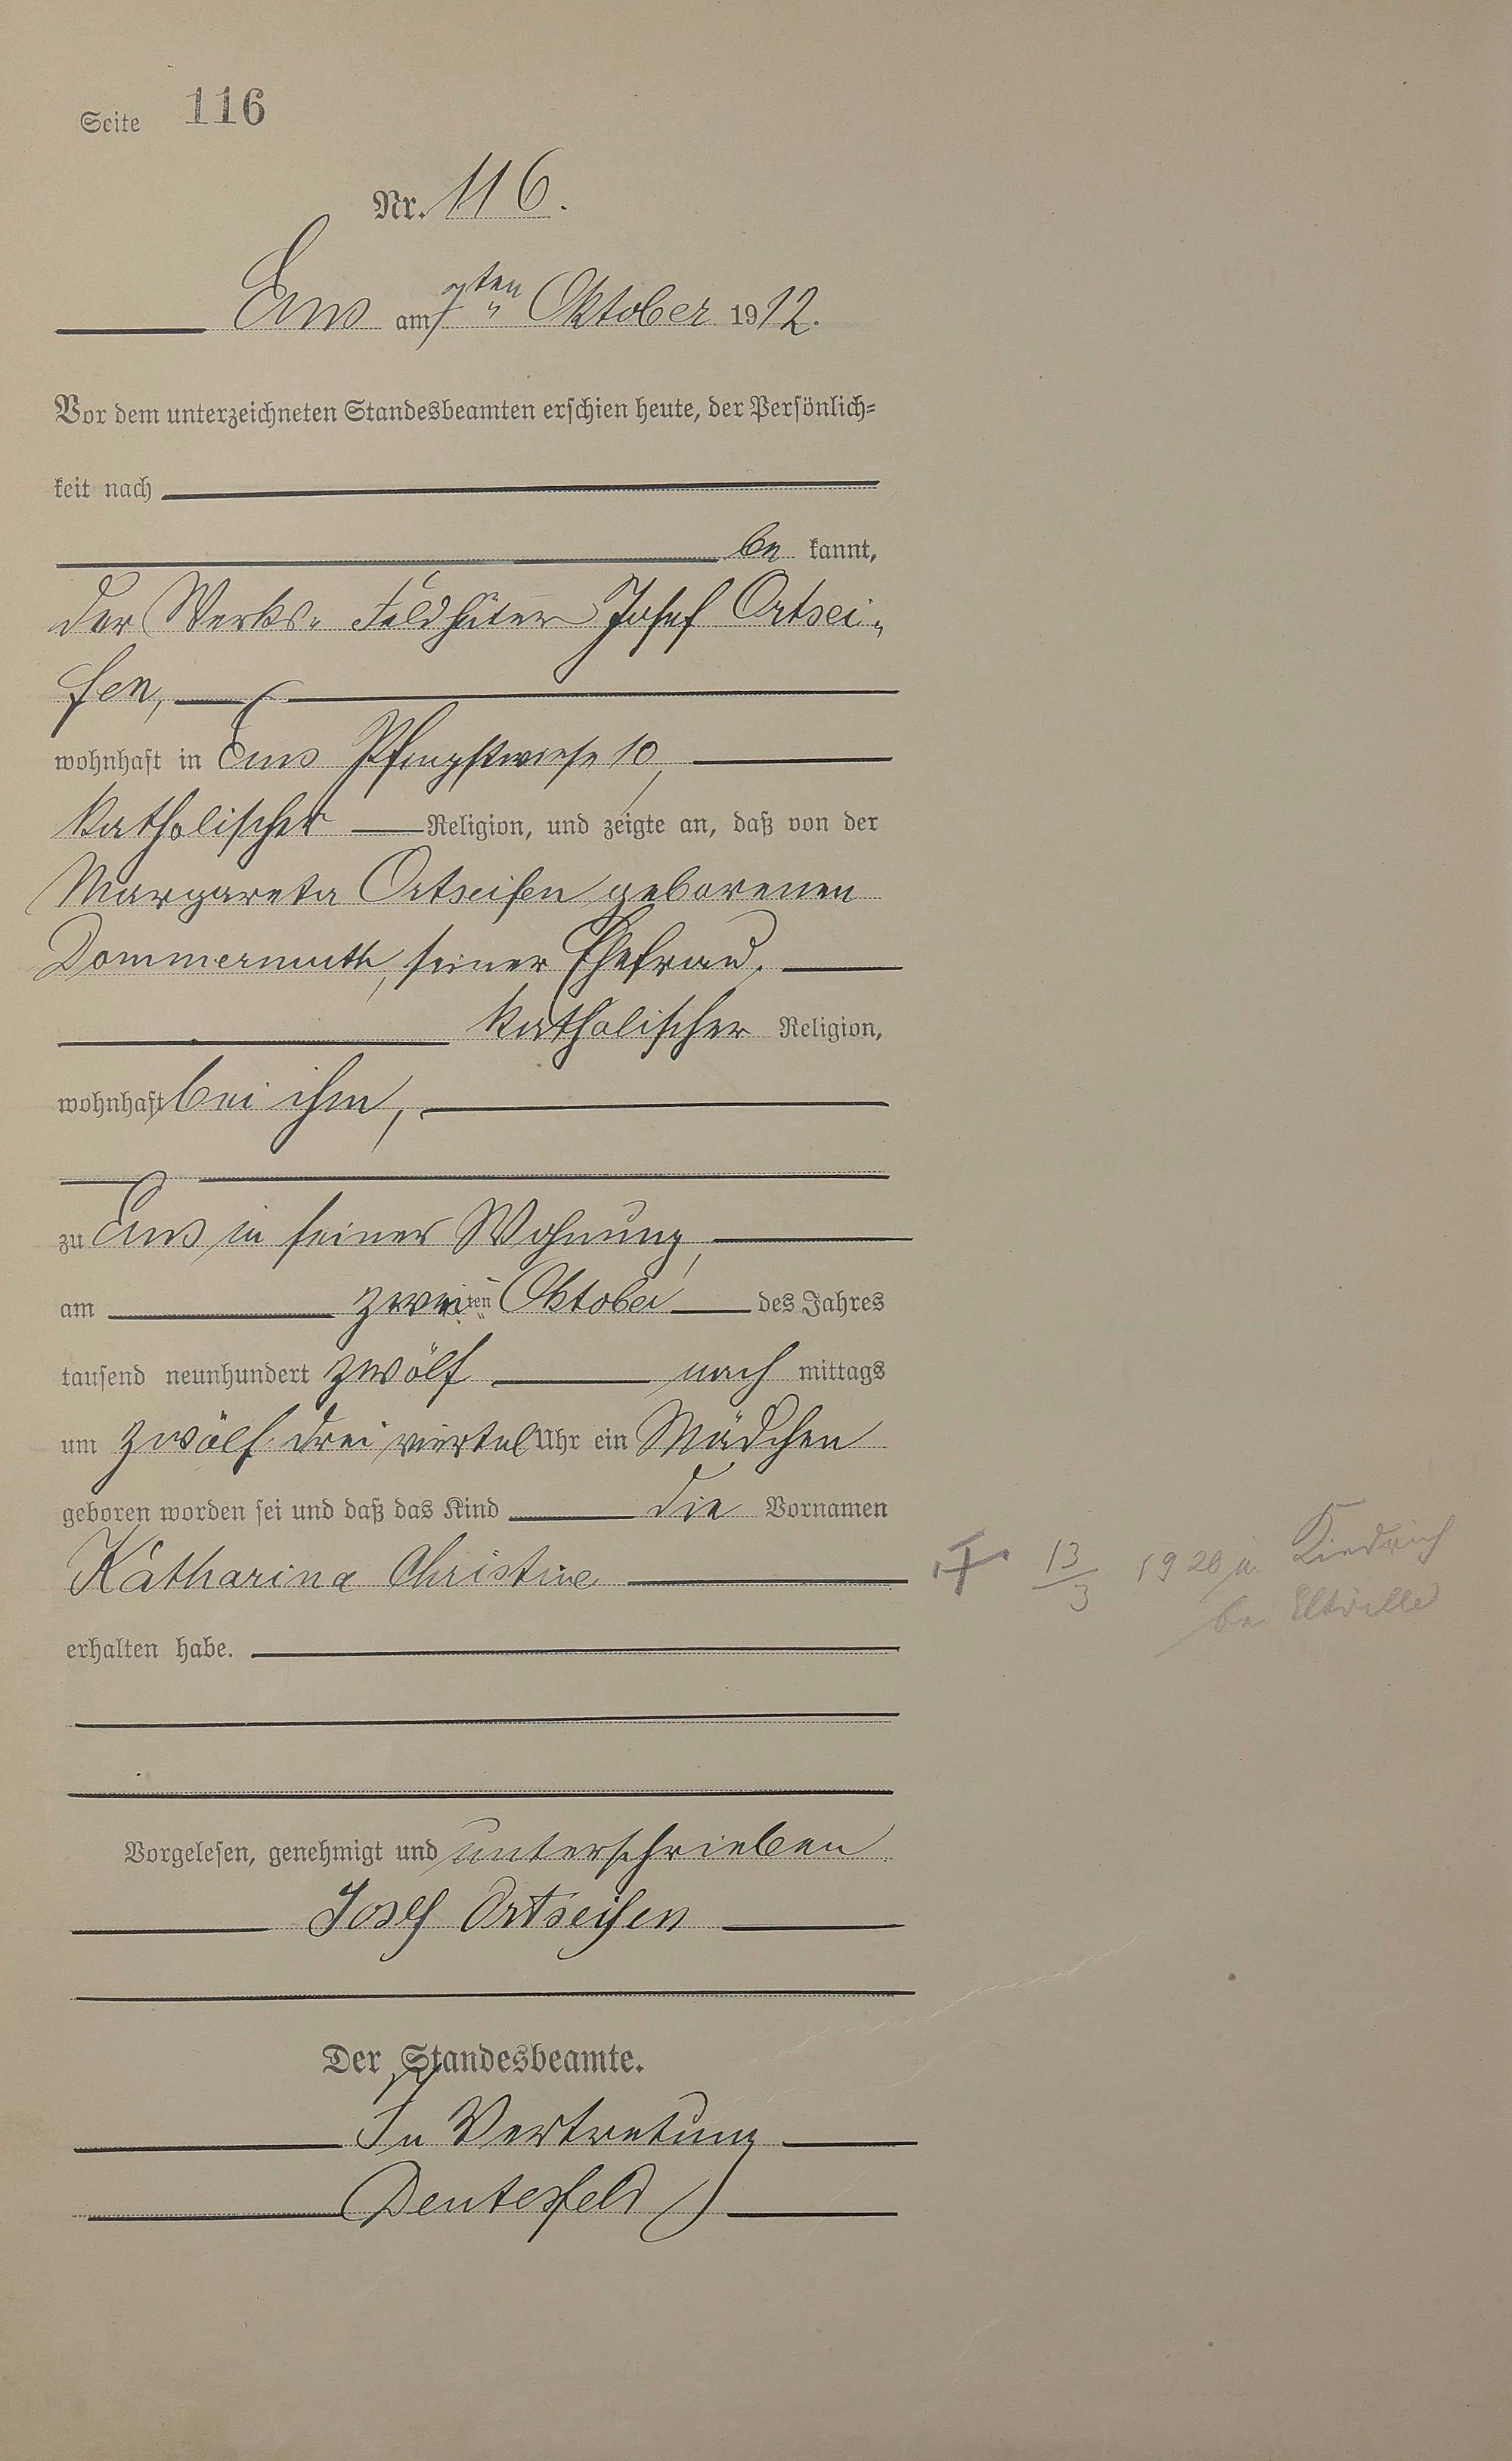 Seite 116
Nr. 116.
Ems am 7ten Oktober 1912.
Vor dem unterzeichneten Standesbeamten erschien heute, der Persönlich-
keit nach
be kannt,
der Werks- Feldhüter Josef Ortsei-
fen,
wohnhaft in Ems Pfingstwiese 10,
katholischer Religion, und zeigte an, daß von der
Margareta Ortseifen geborenen
Dommermuth, seiner Ehefrau,
katholischer Religion,
wohnhaft bei ihm,
zu Ems in seiner Wohnung,
am zweiten Oktober des Jahres
tausend neunhundert zwölf nach mittags
um zwölf drei viertel Uhr ein Mädchen
geboren worden sei und daß das Kind die Vornamen
Katharina Christine
erhalten habe.
† 13/3 1920 in Kiedrich
bei Eltville
Vorgelesen, genehmigt und unterschrieben
Josef Ortseifen
Der Standesbeamte.
In Vertretung
Deutesfeld